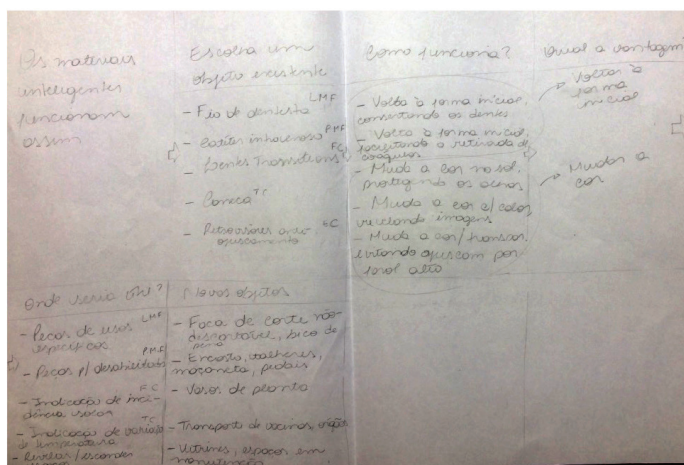 Os materiais
inteligentes
funcionam
assim
Escolha um
objeto existente
- Fio de dentista LMF
- intravenoso PMF
- Lentes Transitions FC
- Caneca TC
- Retrovisores anti FC
ofuscamento
Como funciona?
- Volta à forma inicial,
consertando os dentes
- Volta à forma inicial,
facilitando a retirada de
coágulos
- Muda a cor no sol,
protegendo os olhos
- Muda a cor c/ calor
revelando imagens
- Muda a cor/transpar.
evitando ofuscam por
farol alto
Qual a vantagem?
Voltar à
forma
inicial
Mudar a
cor
Onde seria útil?
- Peças de usos LMF
específicos
- Peças p/ PMF
- Indicação de inci- FC
dência
- Indicação de variação TC
de temperatura
- Revelar/esconder
Novos objetos
- Faca de corte não
descartável, bico de
- Encosto, talheres,
maçaneta, pedais
- Vasos de planta
- Transporte de vacinas, órgãos
- Vitrines, espaços em
manutenção